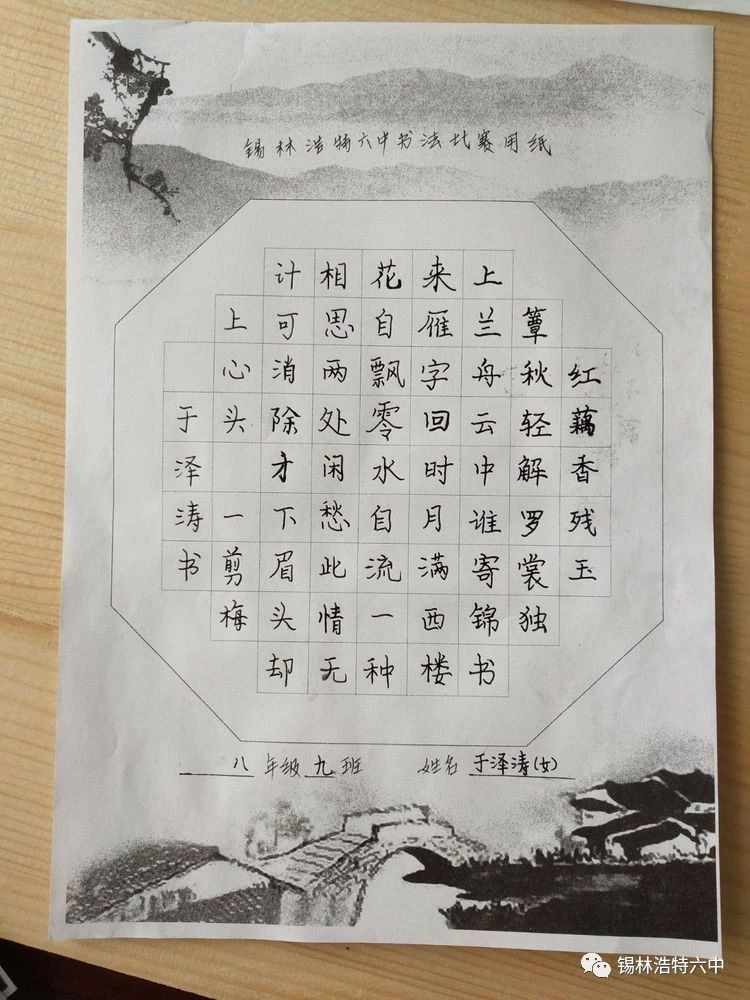 锡林浩特六中书法比赛用纸
红藕香残玉
簟秋轻解罗裳独
上兰舟云中谁寄锦书
来雁字回时月满西楼
花自飘零水自流一种
相思两处闲愁此情无
计可消除才下眉头却
上心头 一剪梅
于泽涛书
八年级九班 姓名于泽涛(女)
锡林浩特六中